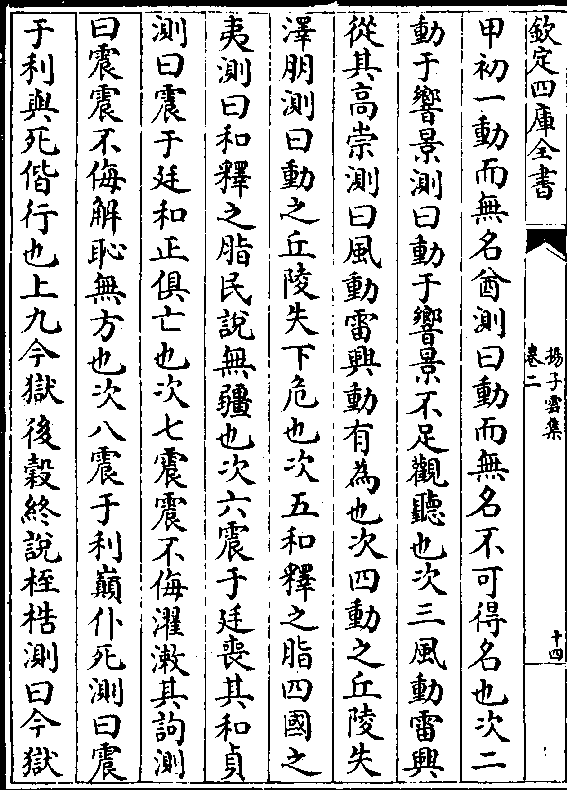 欽定四庫全書
揚子雲集
卷二
十四
甲初一動而無名酋測曰動而無名不可得名也次二
動于響景測曰動于響景不足觀聽也次三風動雷興
從其高崇測曰風動雷興動有為也次四動之丘陵失
澤朋測曰動之丘陵失下危也次五和釋之脂四國之
夷測曰和釋之脂民說無疆也次六震于廷喪其和貞
測曰震于廷和正俱亡也次七震震不侮濯漱其訽測
曰震震不侮解恥無方也次八震于利巔仆死測曰震
于利與死偕行也上九今獄後穀終說桎梏測曰今獄